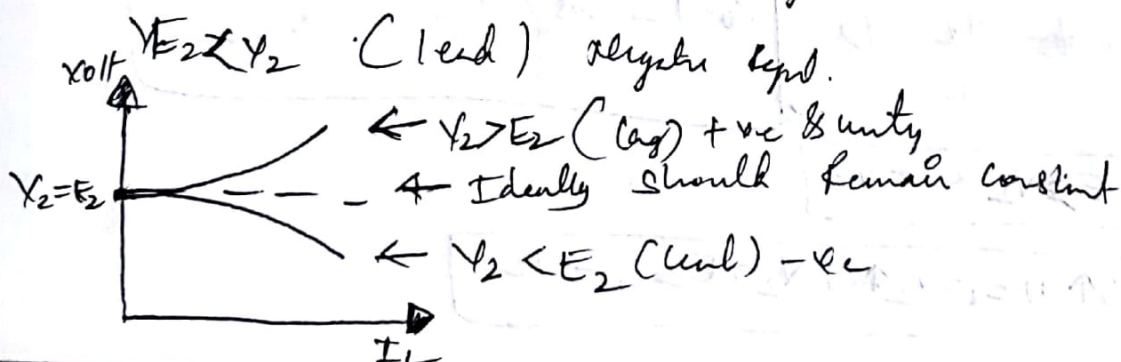 VE₂ < V₂ (lead) negative regul.
Volt
← V₂ > E₂ (lag) +ve & unity
V₂ = E₂
← Ideally should Remain constant
← V₂ < E₂ (lead) -ve
I